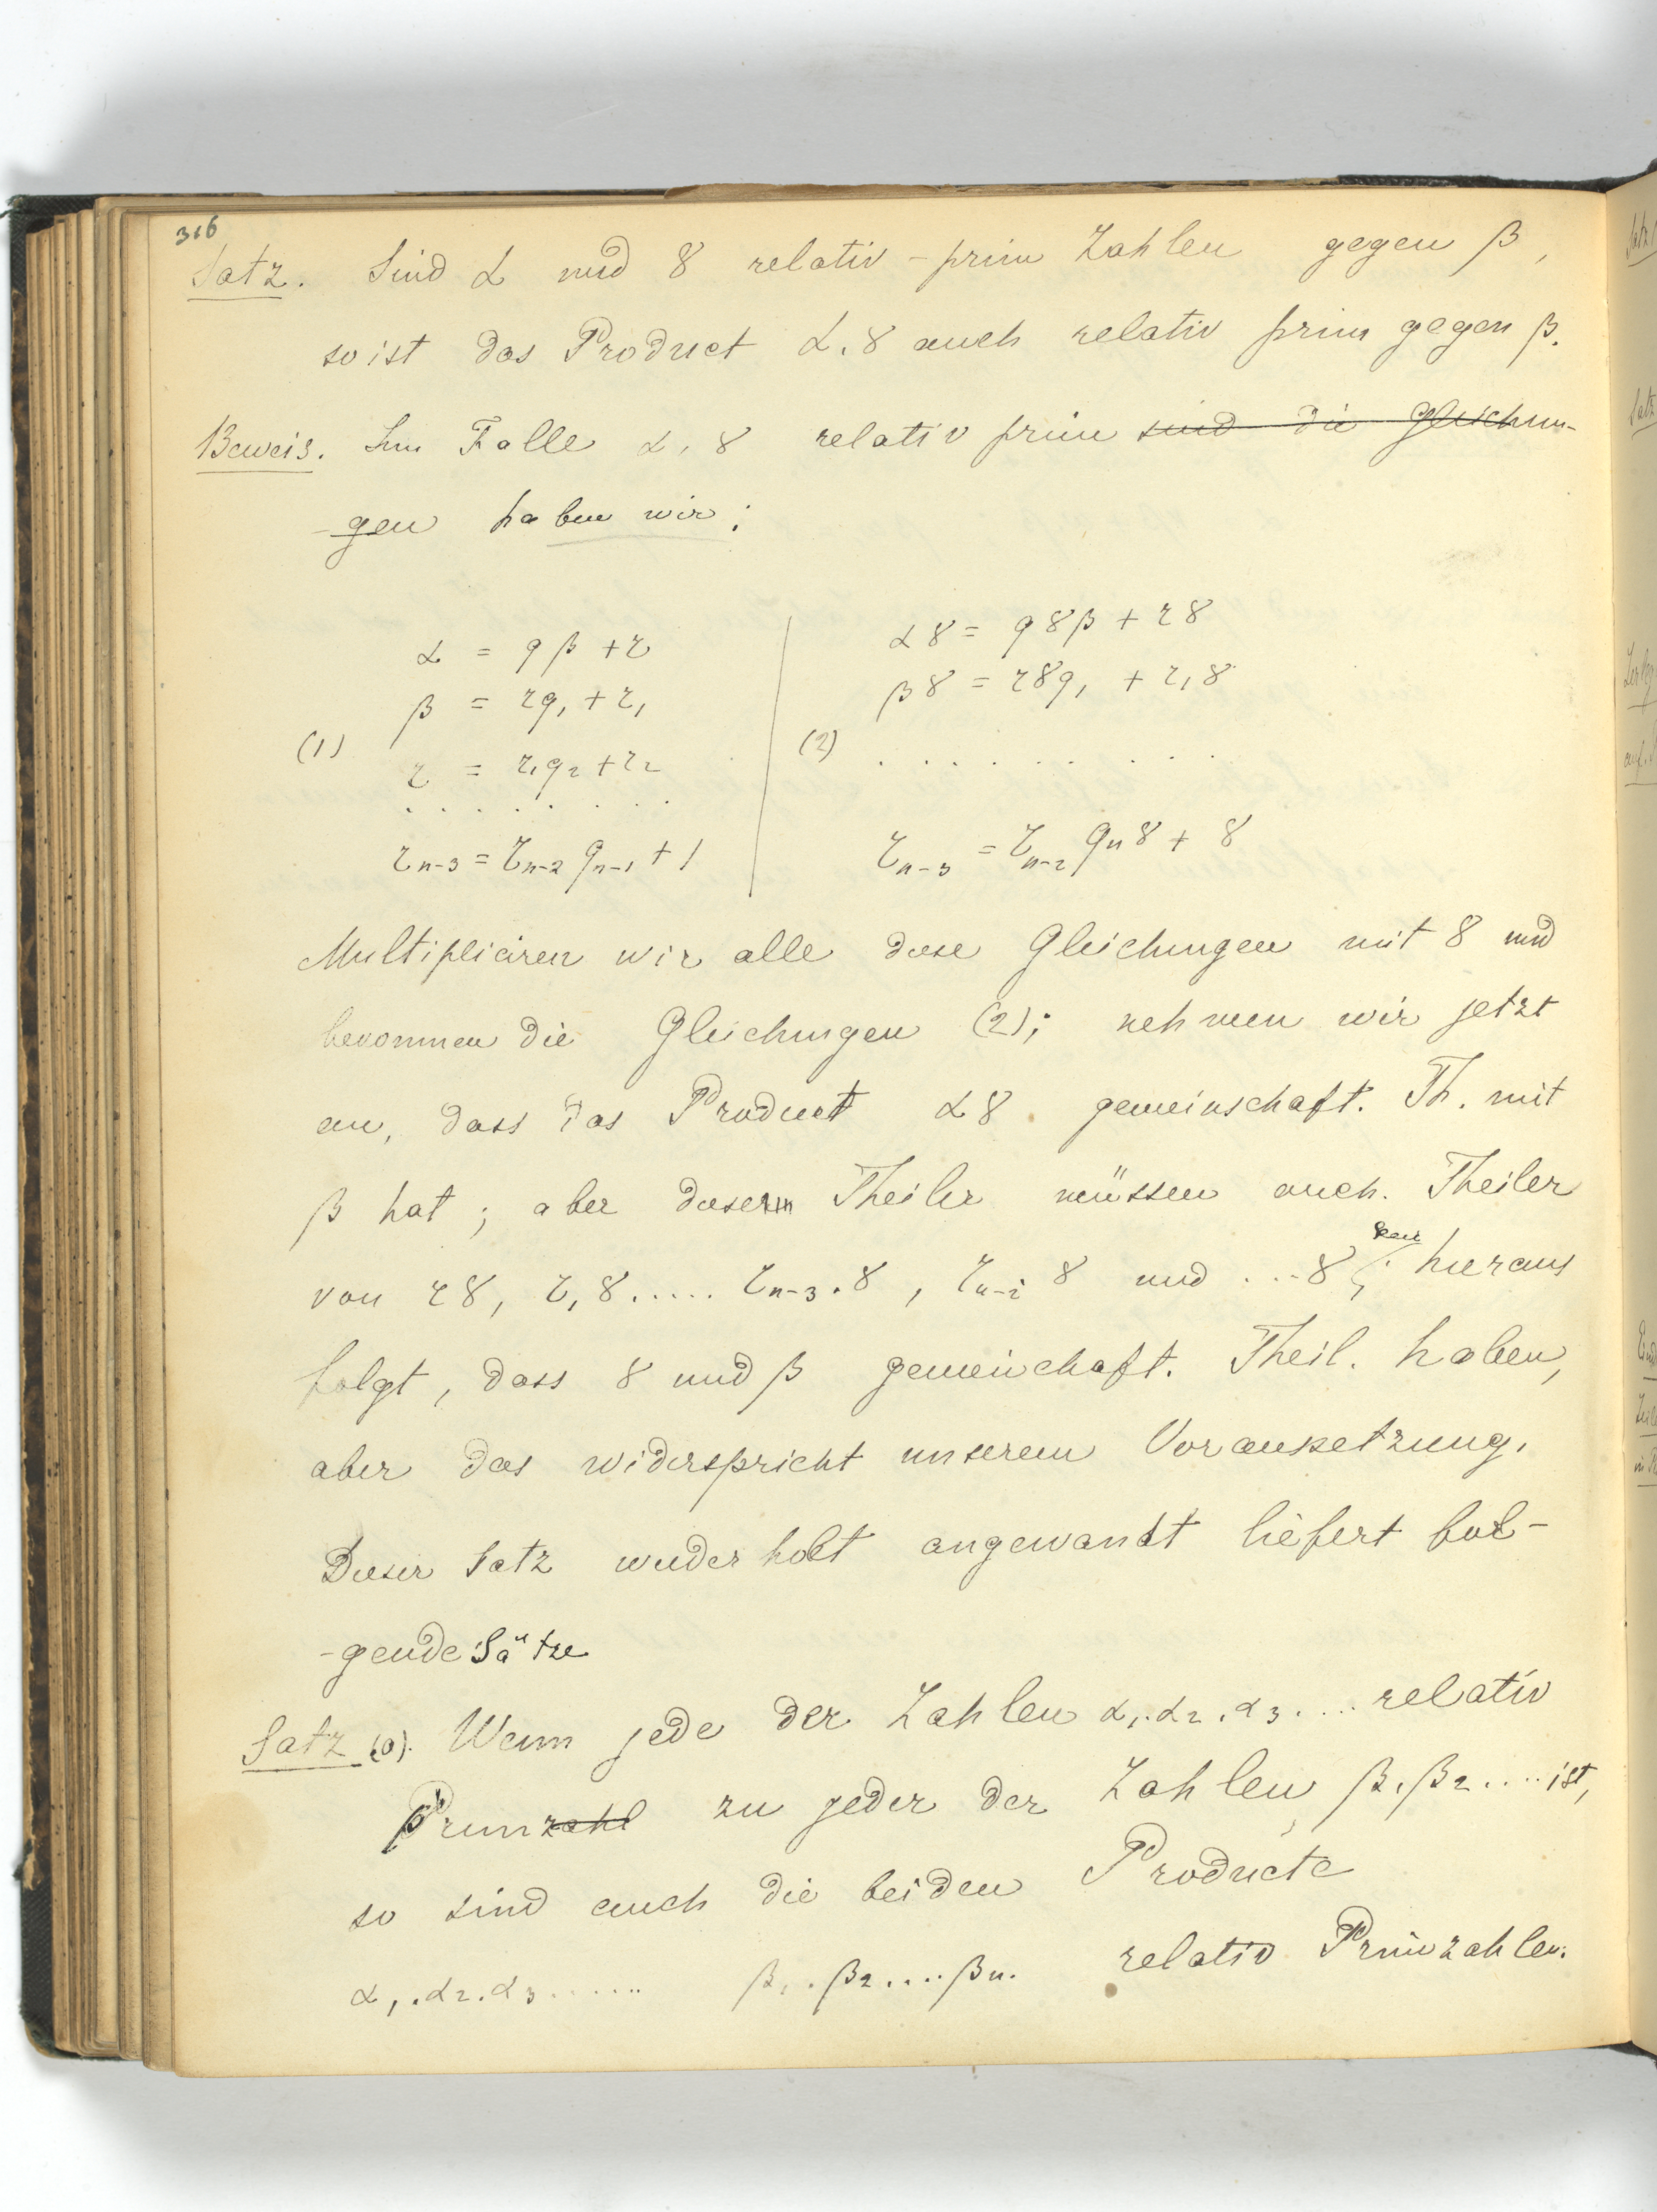 316
Satz. Sind α und γ relativ - prim Zahlen gegen β,
so ist das Product α.γ auch relativ prim gegen β.
Beweis. Im Falle α, γ relativ prim sind die Gleichun-
-gen haben wir:
α = qβ + r
β = rq₁ + r₁
(1)
r = r₁q₂ + r₂
. . . . . . .
rₙ₋₃ = rₙ₋₂ qₙ₋₁ + 1
αγ = qγβ + rγ
βγ = rγq₁ + r₁γ
(2) . . . . . . . . .
rₙ₋₃ = rₙ₋₂ qₙγ + γ
Multipliciren wir alle diese Gleichungen mit γ und
bekommen die Gleichungen (2); nehmen wir jetzt
an, dass das Product αγ gemeinschaft. Th. mit
β hat; aber dieser Theiler müssen auch Theiler
von rγ, r₁γ..... rₙ₋₃.γ, rₙ₋₂ γ und ...γ; hieraus
folgt, dass γ und β gemeinchaft. Theil. haben,
aber das widerspricht unserem Voraussetzung.
Dieser Satz wiederholt angewandt liefert fol-
-gende Sätze
Satz (a). Wenn jede der Zahlen α₁.α₂.α₃.... relativ
Primzahl zu jeder der Zahlen β₁.β₂.... ist,
so sind auch die beiden Producte
α₁.α₂.α₃...... β₁.β₂....βn. relativ Primzahlen.